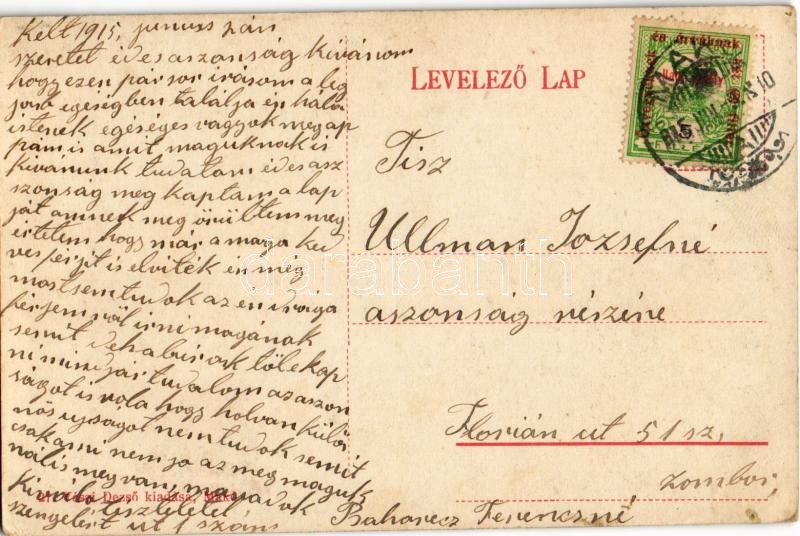 Kelt 1915, junius pán
szeretet édes aszonság Kivánom
hogy ezen pár sor irásom a leg
jobb egéségben találja én hála
istenek egéséges vagyok meg ap
pám is amit maguknak is
Kivánunk tudatom édes asz
szonság meg kaptam a lap
ját aminek meg örültem meg
értetem hogy már a maga ked
ves férjit is elviték én még
most sem tudok az en drága
férjem ről irni magának
semit de ha birok töle kap
ni mind jár tudatom az aszon
ságot is
hogy holvan külö
nös ujságot nem tudok semit
csak ami nem jo az meg maguk
nál is meg van, maradok
Kiváló tisztelettel
ut 1 szám
Baharecz Ferenczné
Dezső kiadása, Makó
LEVELEZŐ LAP
Tisz
Ullman Jozsefné
aszonság részére
Florián ut 51 sz,
Zombor,
özvegyeknek és árváknak
5
darabanth